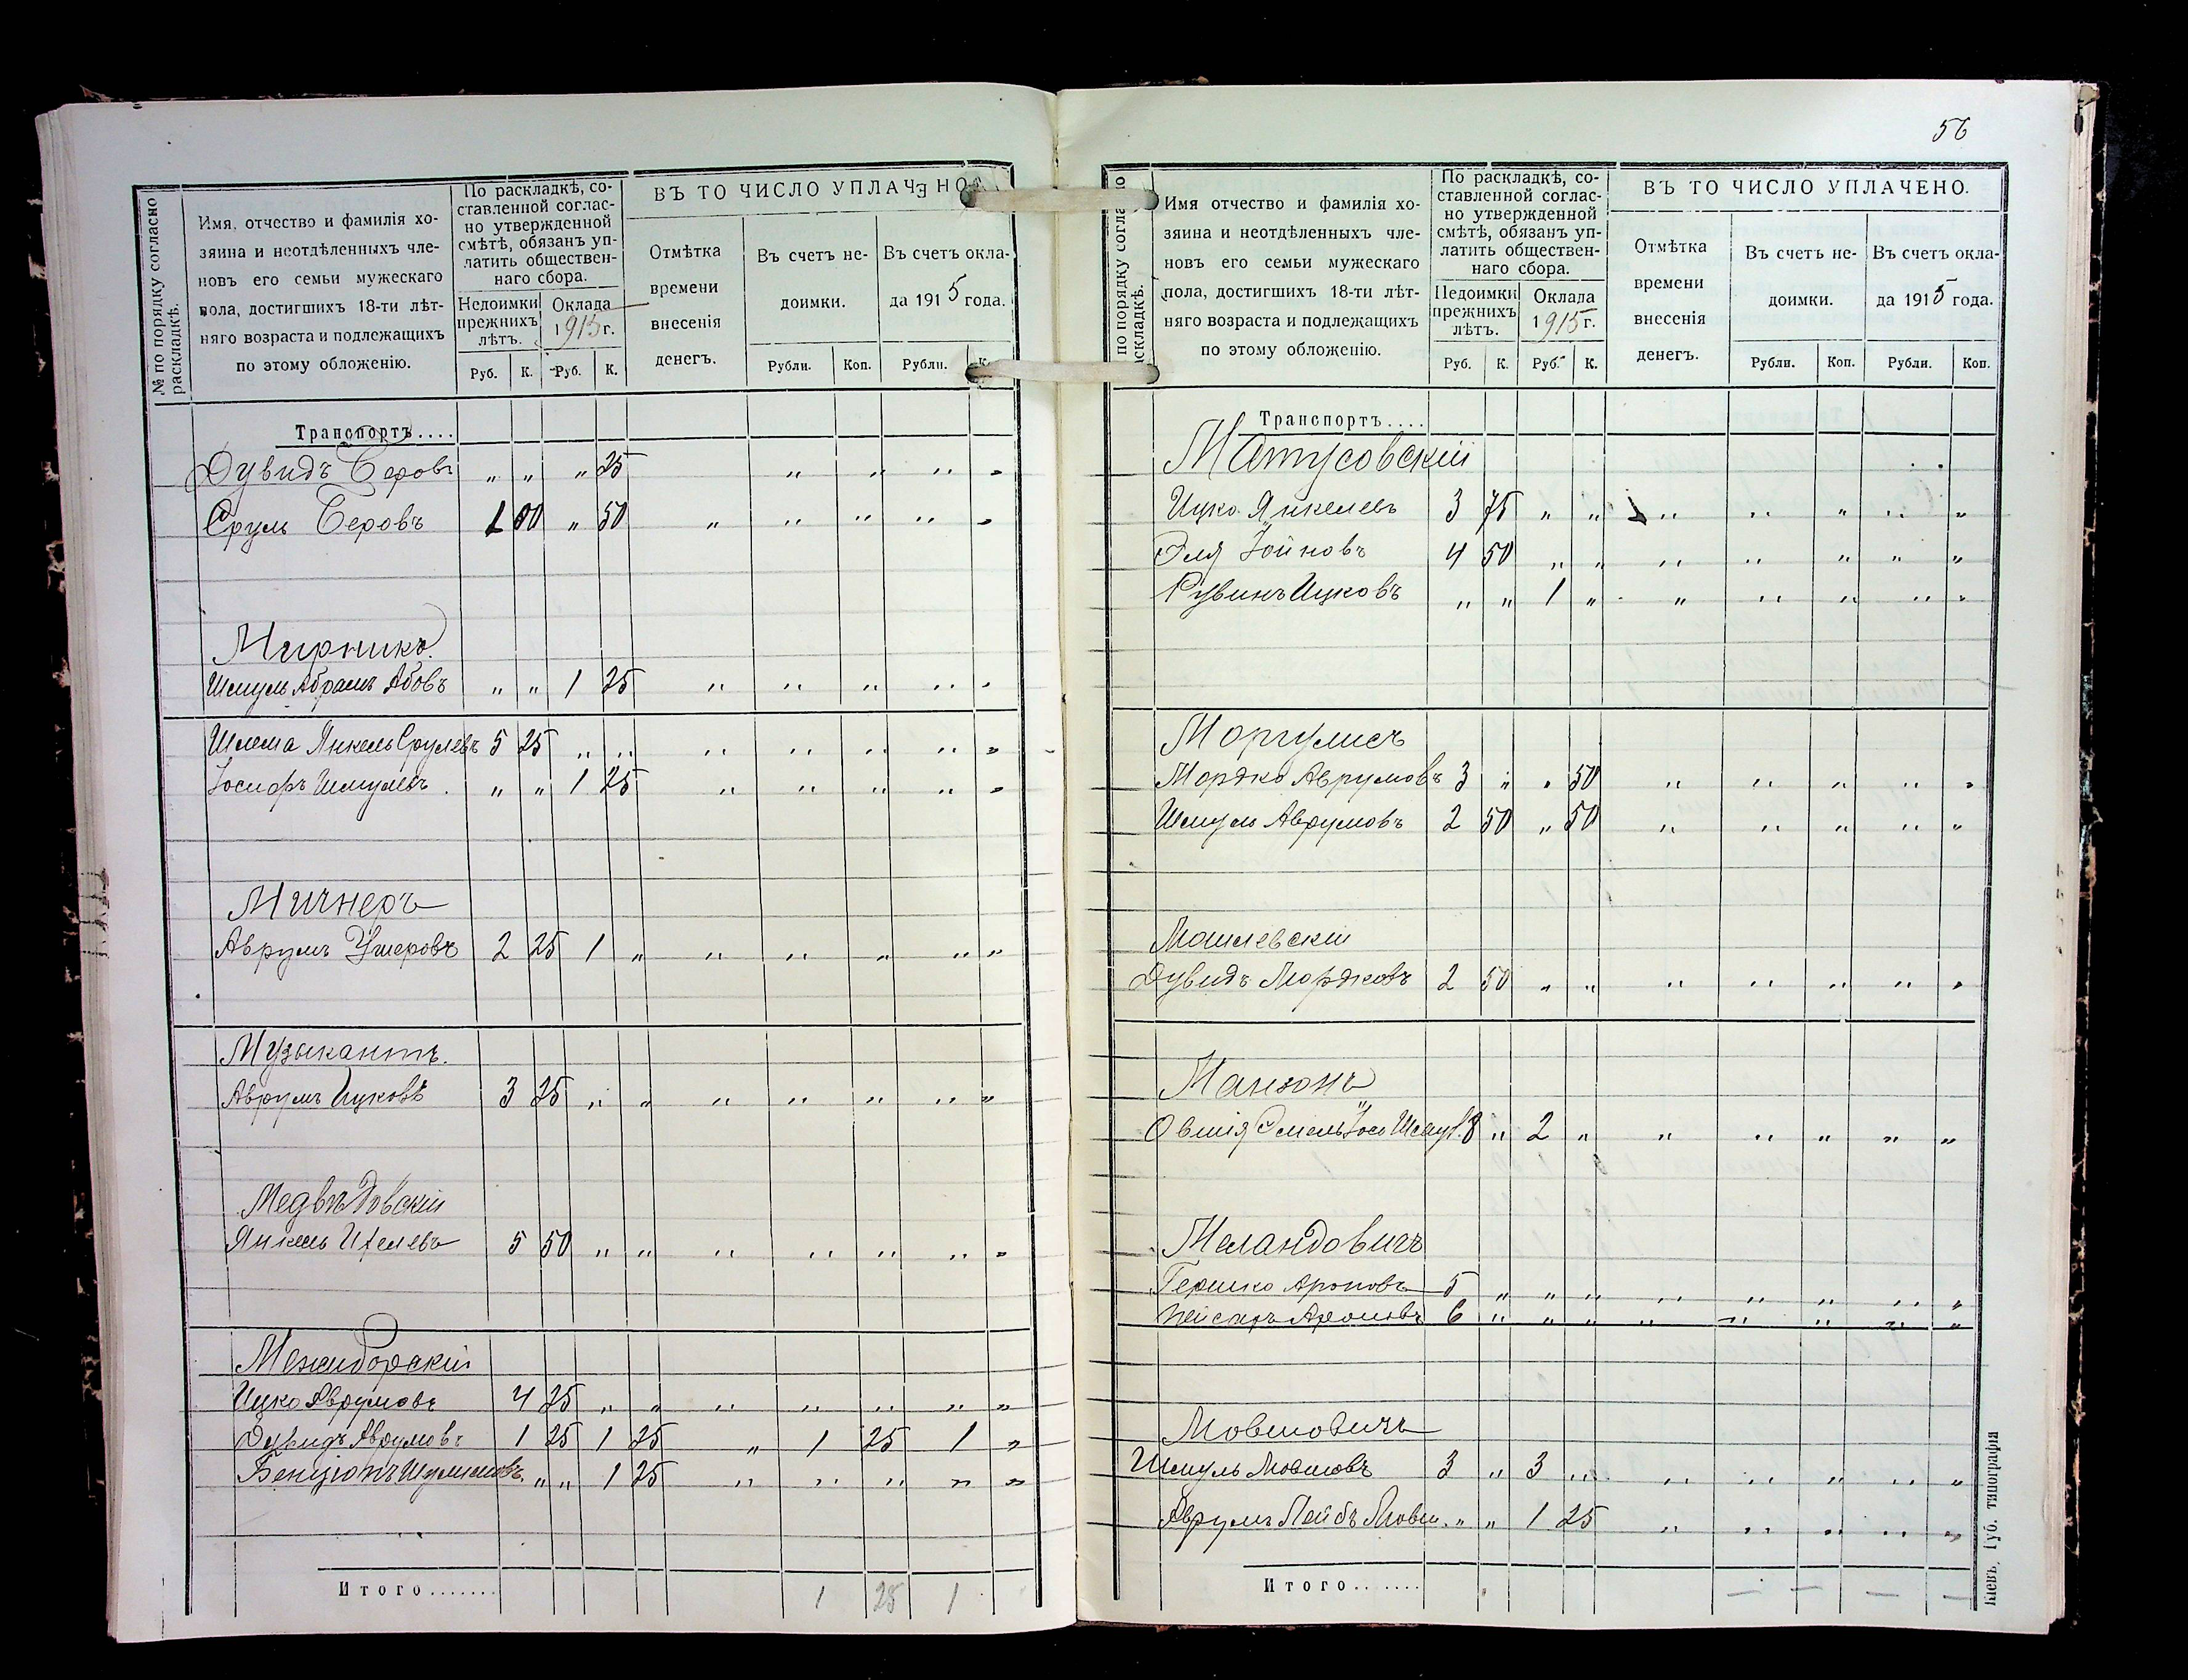 № по порядку согласно раскладкѣ.
Имя, отчество и фамилія хозяина и неотдѣленныхъ членовъ его семьи мужескаго пола, достигшихъ 18-ти лѣтняго возраста и подлежащихъ по этому обложенію.
По раскладкѣ, составленной согласно утвержденной смѣтѣ, обязанъ уплатить общественнаго сбора.
Недоимки прежнихъ лѣтъ.
Оклада 1915 г.
Руб. К. Руб. К.
ВЪ ТО ЧИСЛО УПЛАЧЕНО.
Отмѣтка времени внесенія денегъ.
Въ счетъ недоимки.
Въ счетъ оклада 1915 года.
Рубли. Коп. Рубли. К
Транспортъ....
Дувидъ Беровъ „ „ „ 25 „ „ „ „
Сруль Беровъ 1 00 „ 50 „ „ „ „ „
Мирникъ.
Шмуль Абрамъ Абовъ „ „ 1 25 „ „ „ „ „
Шлема Янкель Срулевъ 5 25 „ „ „ „ „ „ „
Іосифъ Шмулевъ „ „ 1 25 „ „ „ „ „
Мичнеръ
Аврумъ Ушеровъ 2 25 1 „ „ „ „ „ „
Музыкантъ.
Аврумъ Ицковъ 3 25 „ „ „ „ „ „ „
Медвѣдовскій
Янкель 5 50 „ „ „ „ „ „ „
Межиборскій
Ицко Аврумовъ 4 25 „ „ „ „ „ „ „
Дувидъ Аврумовъ 1 25 1 25 „ 1 25 1 „
Бенціонъ „ „ 1 25 „ „ „ „ „
Итого....... 1 25 1
56
по порядку согла о аскладкѣ.
Имя отчество и фамилія хозяина и неотдѣленныхъ членовъ его семьи мужескаго пола, достигшихъ 18-ти лѣтняго возраста и подлежащихъ по этому обложенію.
По раскладкѣ, составленной согласно утвержденной смѣтѣ, обязанъ уплатить общественнаго сбора.
Недоимки прежнихъ лѣтъ.
Оклада 1915 г.
Руб. К. Руб. К.
ВЪ ТО ЧИСЛО УПЛАЧЕНО.
Отмѣтка времени внесенія денегъ.
Въ счетъ недоимки.
Въ счетъ оклада 1915 года.
Рубли. Коп. Рубли. Коп.
Транспортъ....
Матусовскій
Ицко Янкелевъ 3 75 „ „ „ „ „ „ „
Эля Іойновъ 4 50 „ „ „ „ „ „ „
Рувинъ Ицковъ „ „ 1 „ „ „ „ „ „
Моргулисъ
Мордко Аврумовъ 3 „ „ 50 „ „ „ „ „
Шмуль Аврумовъ 2 50 „ 50 „ „ „ „ „
Машлевскій
Дувидъ Мордковъ 2 50 „ „ „ „ „ „ „
Манзонъ
Овшія 8 „ 2 „ „ „ „ „ „
Меландовичъ
Гершко Ароновъ 5 „ „ „ „ „ „ „ „
Пейсахъ Ароновъ 6 „ „ „ „ „ „ „ „
Мовшовичъ
Шмуль Мовшовъ 3 „ 3 „ „ „ „ „ „
Аврумъ Лейбъ Мовш. „ „ 1 25 „ „ „ „ „
Итого....... — — — —
Кіевъ. Губ. типографія